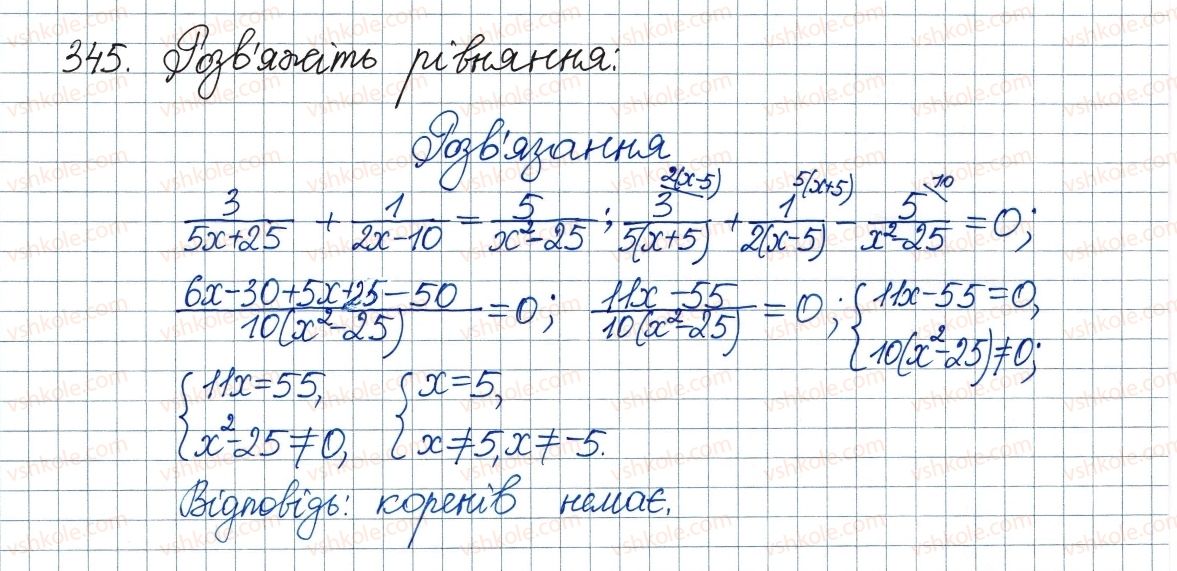 345. Розв'яжіть рівняння:
Розв'язання
3/(5x+25) + 1/(2x-10) = 5/(x²-25); 3/(5(x+5)) \ 2(x-5) + 1/(2(x-5)) \ 5(x+5) - 5/(x²-25) \ 10 = 0;
(6x-30+5x+25-50)/(10(x²-25)) = 0; (11x-55)/(10(x²-25)) = 0; { 11x-55=0, 10(x²-25)≠0;
{ 11x=55, x²-25≠0, { x=5, x≠5, x≠-5.
Відповідь: коренів немає.